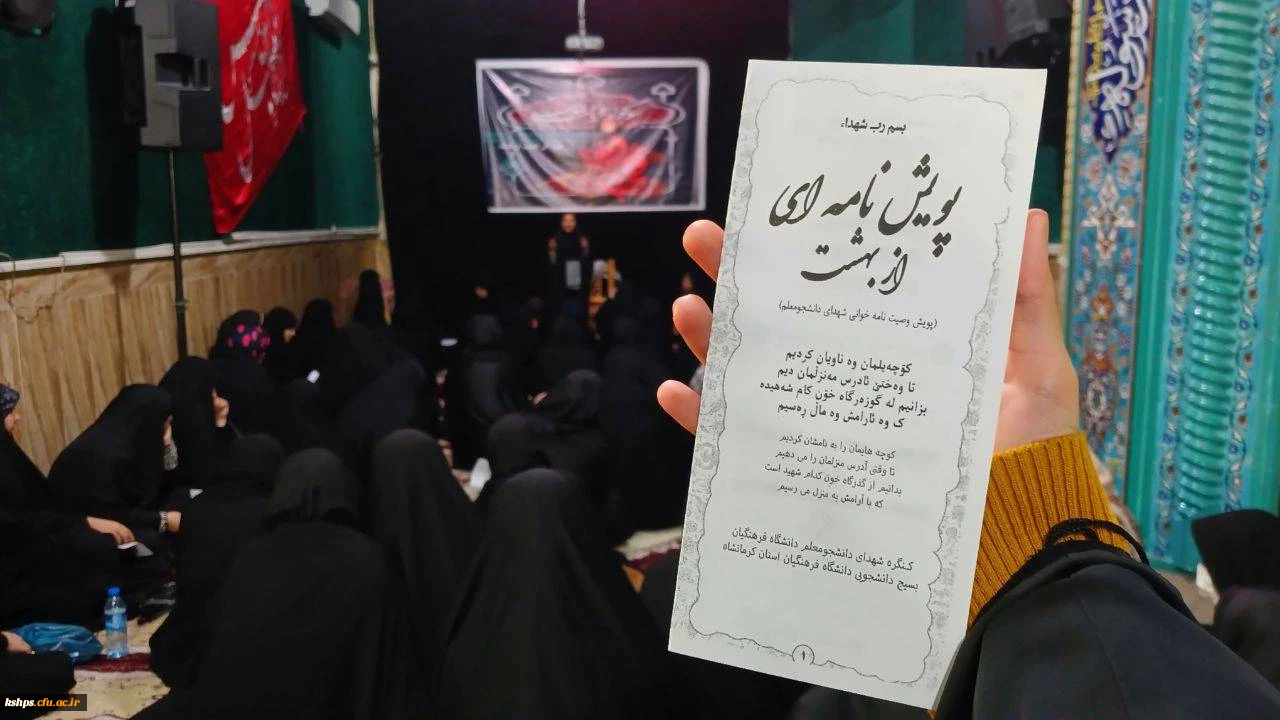 بسم رب شهداء
پویش نامه ای
از بهشت
(پویش وصیت نامه خوانی شهدای دانشجومعلم)
کۆچەیلمان وە ناویان کردیم
تا وەختێ ئادرس مەنزڵمان دیم
بزانیم لە گوزەرگاە خۆن کام شەهیدە
ک وە ئارامش وە ماڵ ڕەسیم
کوچه هایمان را به نامشان کردیم
تا وقتی آدرس منزلمان را می دهیم
بدانیم از گذرگاه خون کدام شهید است
که با آرامش به منزل می رسیم
کنگره شهدای دانشجومعلم دانشگاه فرهنگیان
بسیج دانشجویی دانشگاه فرهنگیان استان کرمانشاه
۱
kshps.cfu.ac.ir